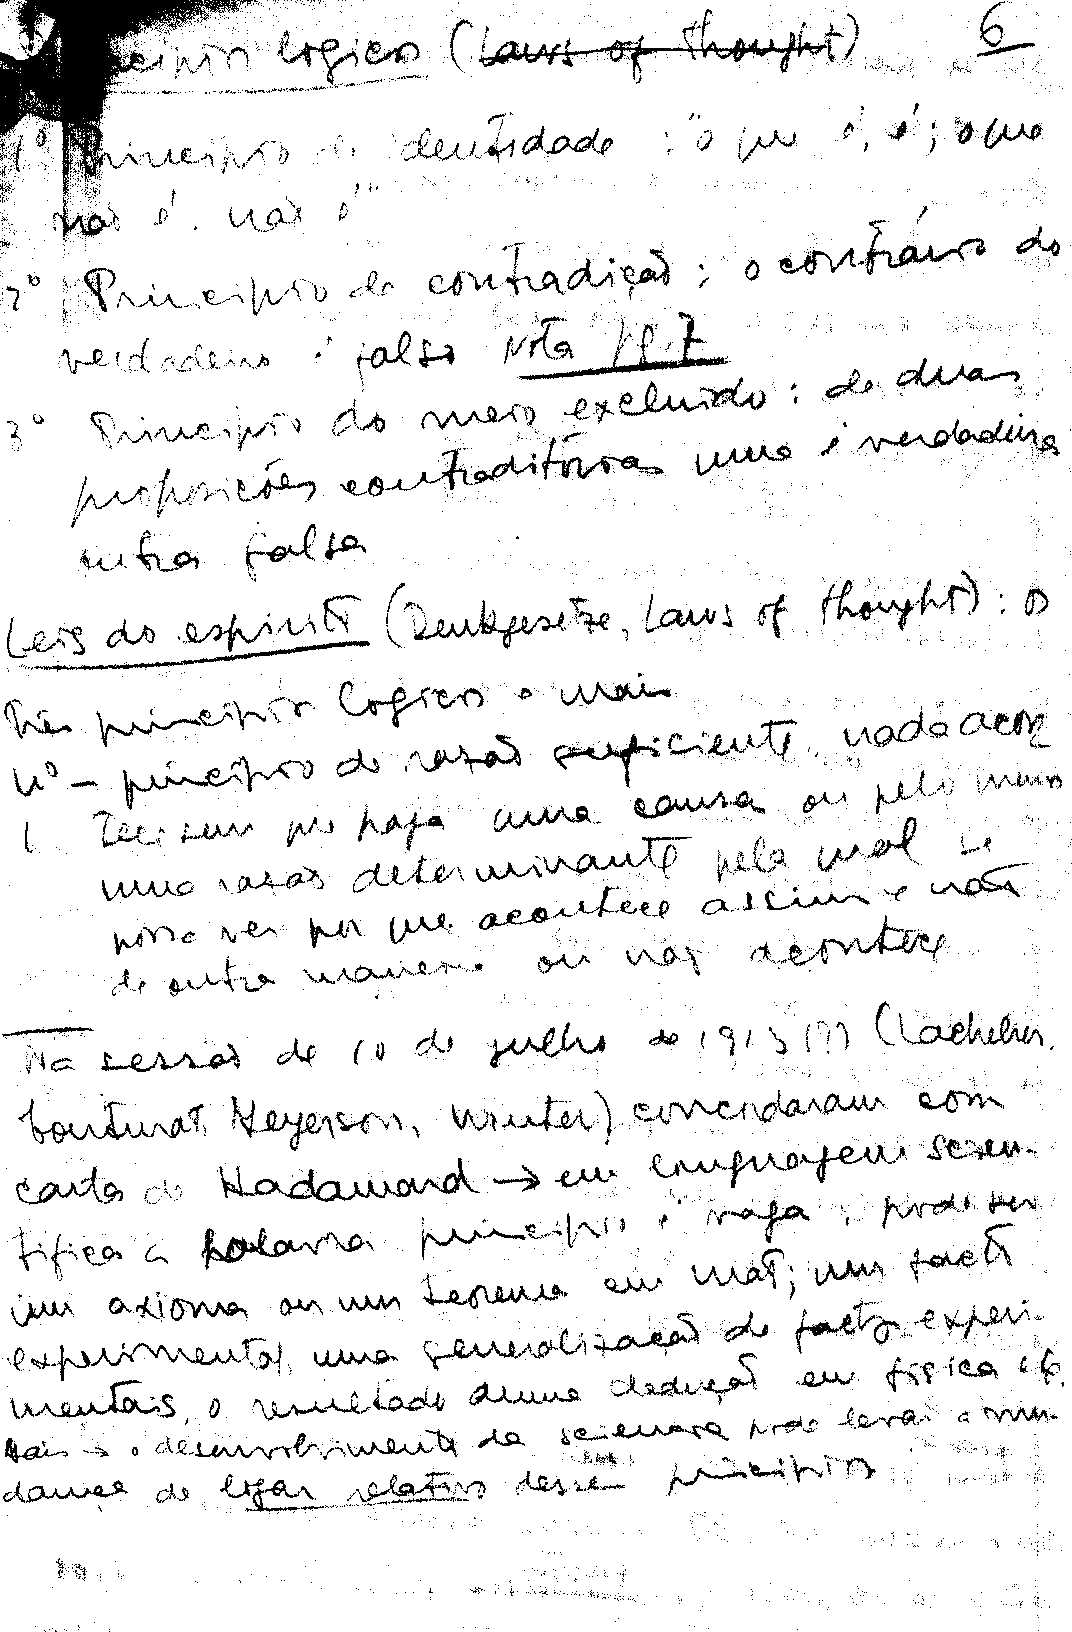 cipios logicos (Laws of thought) 6
1º Principio de identidade : "o que é, é; o que
não é. não é"
2º Principio de contradição : o contrário do
verdadeiro é falso Nota pg. 7
3º Principio do meio excluido : de duas
proposições contraditórias uma é verdadeira
outra falsa
Leis do espirito (Denkgesetze, Laws of thought) : os
três principios logicos e mais
4º – principio de razão suficiente, "nada acon
tece sem que haja uma causa ou pelo menos
uma razão determinante pela qual se
possa ver por que acontece assim e não
de outra maneira ou não acontece
Na sessão de 10 de julho de 191 (Lachelier,
Couturat, Meyerson, Winter) concordaram com
carta de Hadamard → em linguagem scien-
tifica a palavra principio é vaga : pode ser
um axioma ou um teorema em mat; um facto
experimental, uma generalização de factos experi-
mentais, o resultado duma dedução em fisica
o desenvolvimento da sciencia pode levar a mu-
dança de lugar relativo desses principios